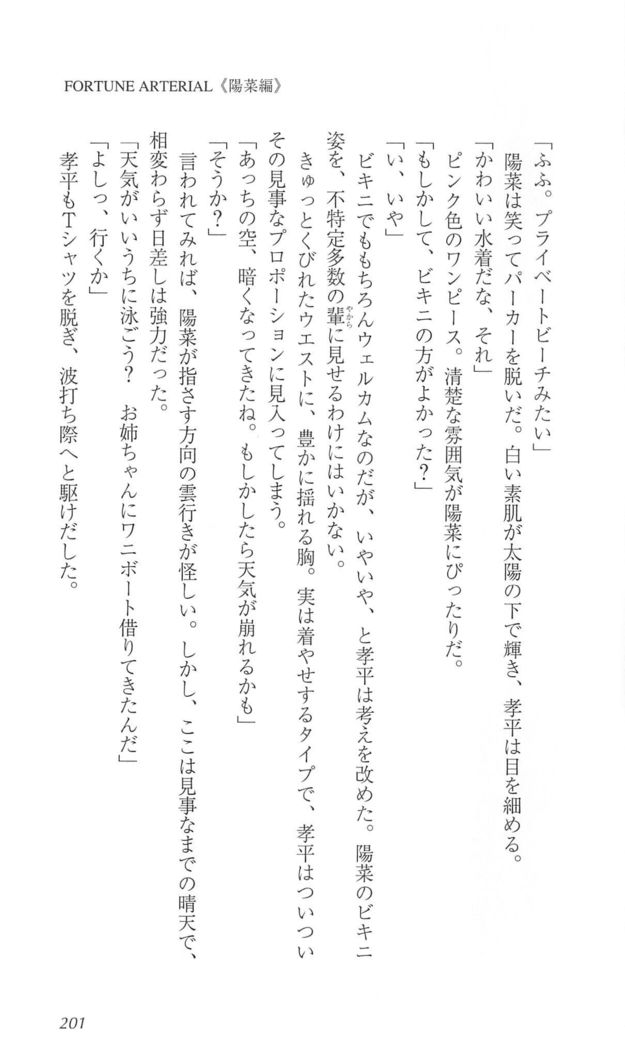 FORTUNE ARTERIAL《陽菜編》
「ふふ。プライベートビーチみたい」
　陽菜は笑ってパーカーを脱いだ。白い素肌が太陽の下で輝き、孝平は目を細める。
「かわいい水着だな、それ」
　ピンク色のワンピース。清楚な雰囲気が陽菜にぴったりだ。
「もしかして、ビキニの方がよかった？」
「い、いや」
　ビキニでももちろんウェルカムなのだが、いやいや、と孝平は考えを改めた。陽菜のビキニ
姿を、不特定多数の輩に見せるわけにはいかない。
やから
　きゅっとくびれたウエストに、豊かに揺れる胸。実は着やせするタイプで、孝平はついつい
その見事なプロポーションに見入ってしまう。
「あっちの空、暗くなってきたね。もしかしたら天気が崩れるかも」
「そうか？」
　言われてみれば、陽菜が指さす方向の雲行きが怪しい。しかし、ここは見事なまでの晴天で、
相変わらず日差しは強力だった。
「天気がいいうちに泳ごう？　お姉ちゃんにワニボート借りてきたんだ」
「よしっ、行くか」
　孝平もTシャツを脱ぎ、波打ち際へと駆けだした。
201